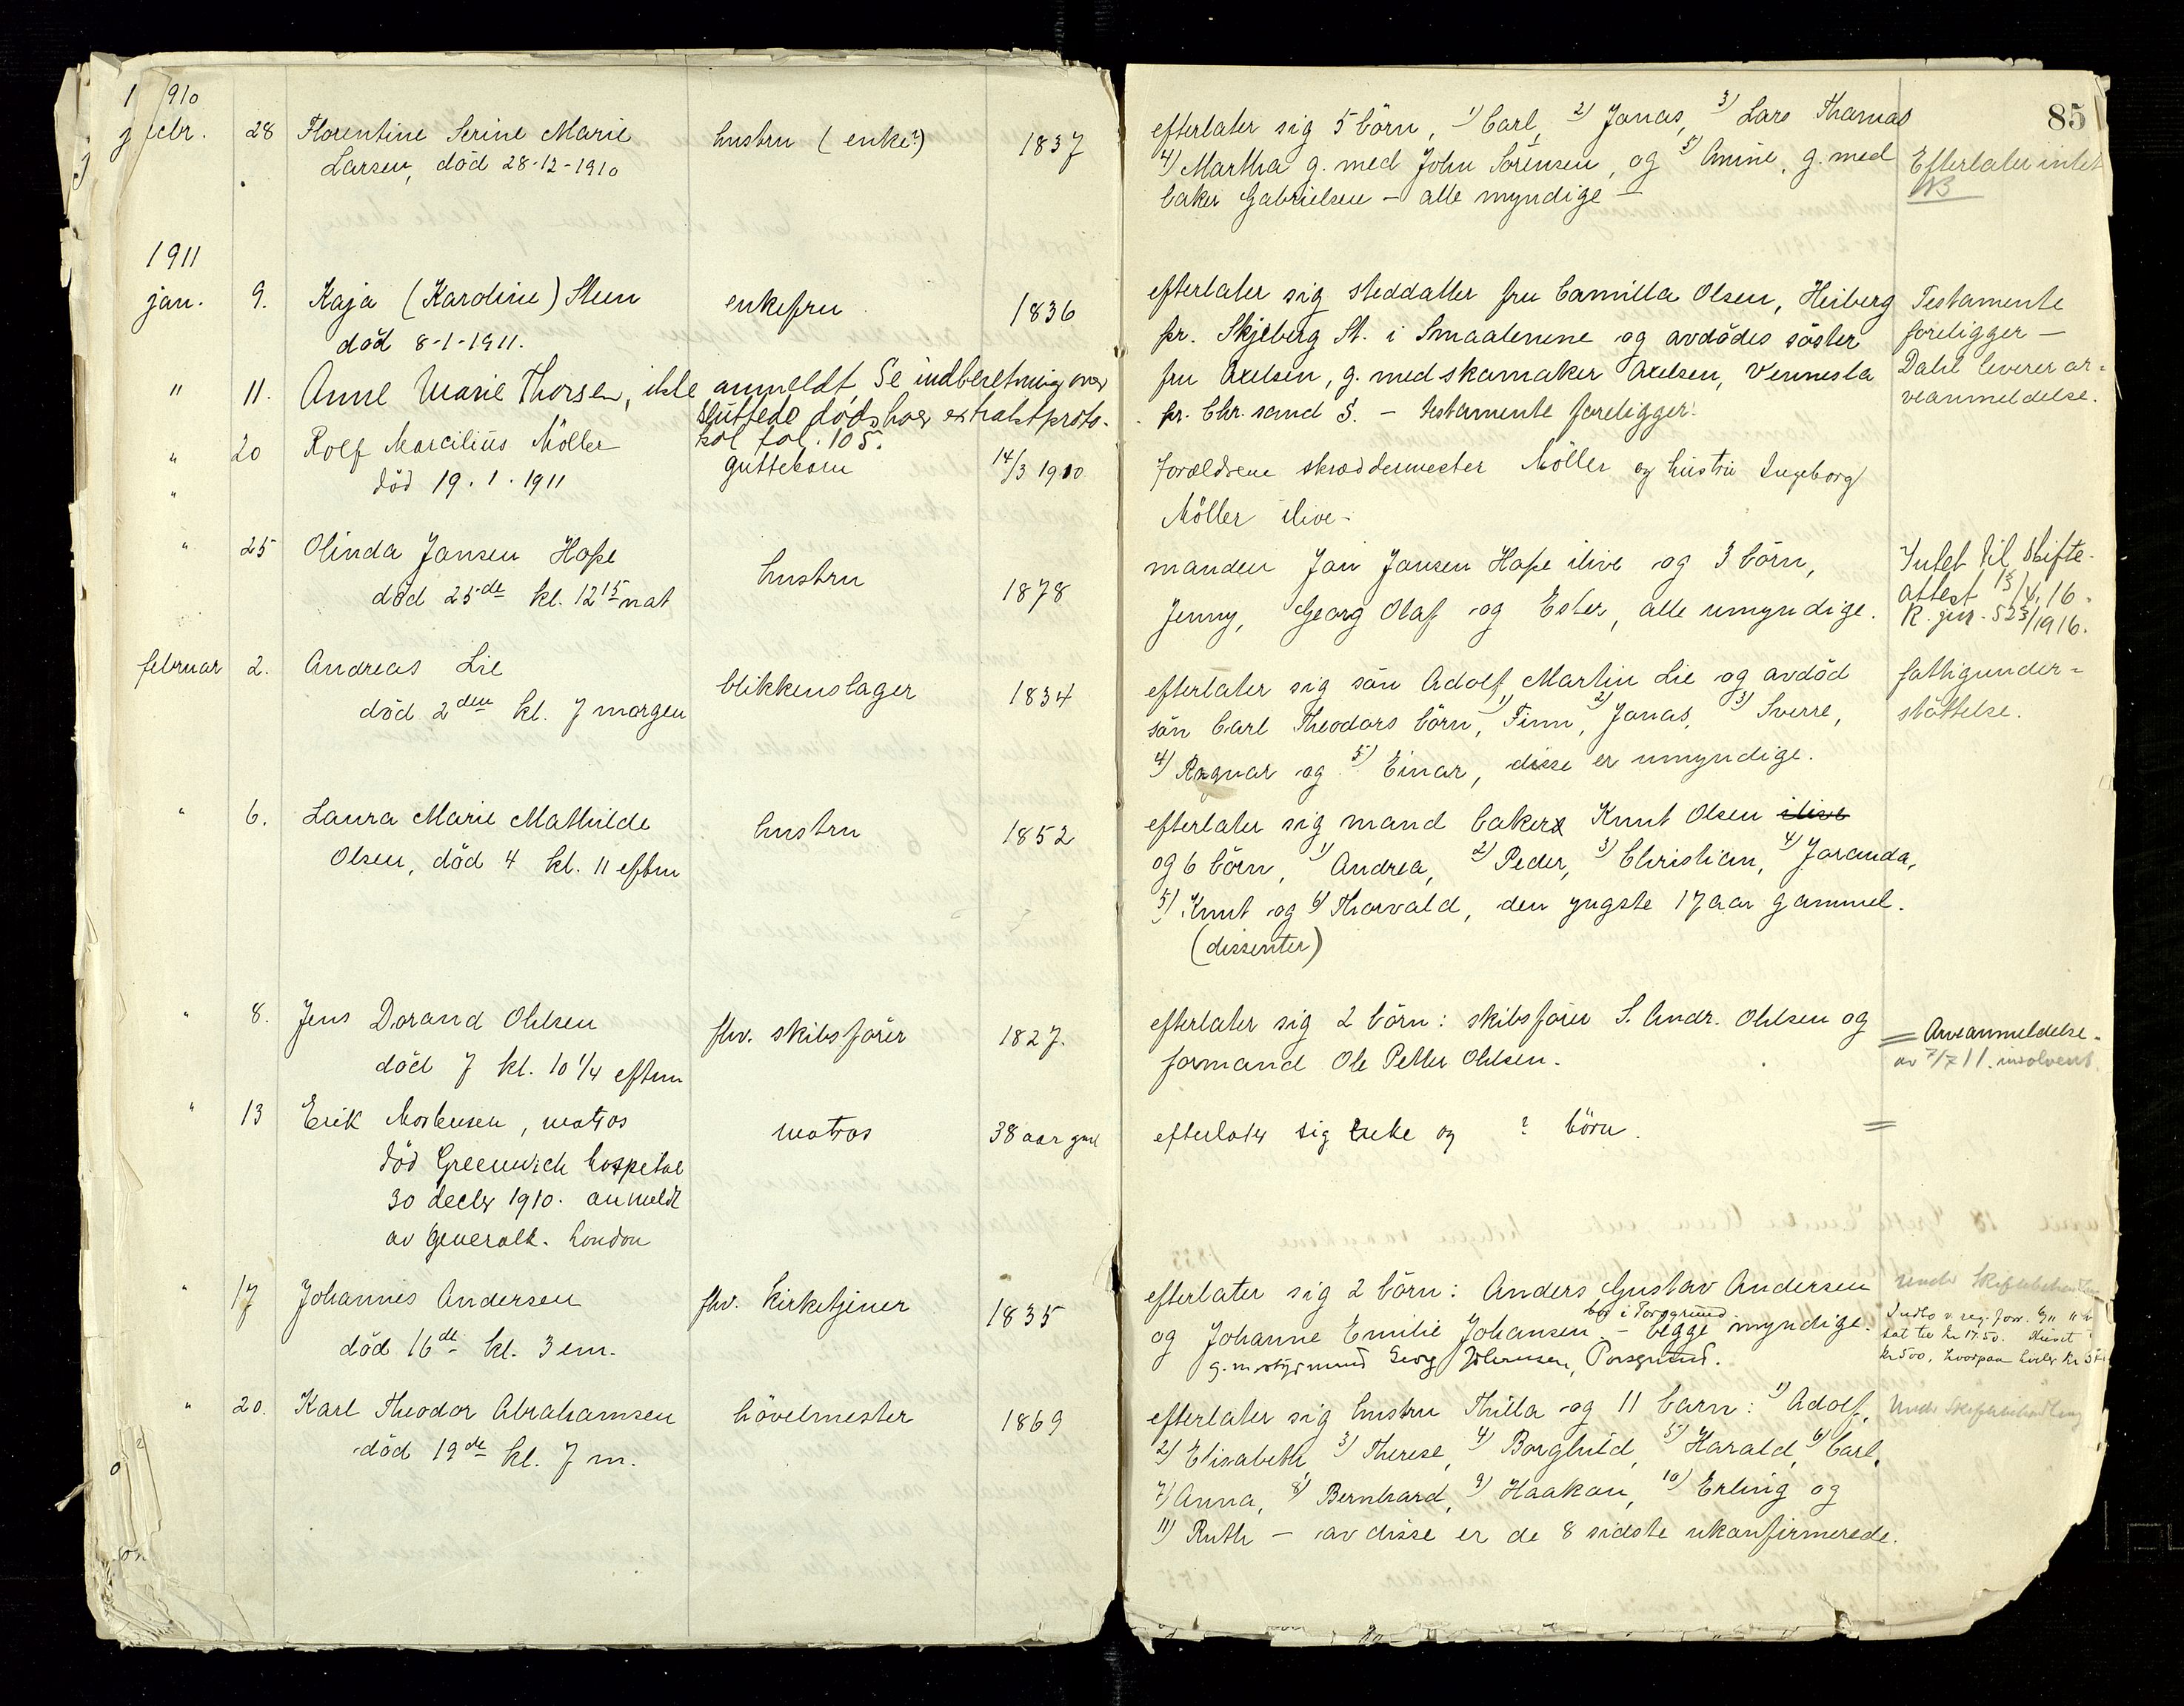 85
1910
decbr. 28 Florentine Serine Marie hustru (enke?) 1837 efterlater sig 5 börn, 1) Carl, 2) Jonas, 3) Lars Thomas
Larsen, död 28-12-1910 4) Martha g. med John Sörensen, og 5) Amine, g. med Efterlater intet
baker Gabrielsen – alle myndige –
1911
jan. 9. Kaja (Karoline) Steen enkefru 1836 efterlater sig steddatter fru Camilla Olsen, Heiberg Testamente
död 8-1-1911. pr. Skjeberg St. i Smaalenene og avdödes söster foreligger –
" 11. Anne Marie Thorsen, ikke anmeldt, Se indberetning over fru Axelsen, g. med skomaker Axelsen, Vennesla Dahl leverer ar-
sluttede dödsboer extraktproto- pr. Chr. sand S. – testamente foreligger. veanmeldelse.
kol fol. 105.
" 20 Rolf Marcilius Möller guttebarn 14/3 1910 Forældrene skræddermester Möller og hustru Ingeborg
" död 19.1.1911 Möller ilive –
" 25 Olinda Jansen Hope hustru 1878 manden Jan Jansen Hope ilive og 3 börn, Intet til Skifte-
död 25de kl. 12 15 nat Jenny, Georg Olaf og Ester, alle umyndige. attest 13/4.16.
K. jnr. 523/1916.
februar 2. Andreas Lie blikkenslager 1834 efterlater sig sön Adolf Martin Lie og avdöd fattigunder-
död 2den kl. 7 morgen sön Carl Theodors börn, 1) Finn, 2) Jonas, 3) Sverre, stöttelse.
4) Ragnar og 5) Einar, disse er umyndige.
" 6. Laura Marie Mathilde hustru 1852 efterlater sig mand baker Knut Olsen ilive
Olsen, död 4 kl. 11 eftm og 6 börn, 1) Andrea, 2) Peder, 3) Christian, 4) Joranda,
5) Knut og 6) Thorvald, den yngste 17 aar gammel.
(dissenter)
" 8. Jens Dorand Ohlsen fhv. skibsförer 1827. efterlater sig 2 börn: skibsförer S. Andr. Ohlsen og = Arveanmeldelse.
död 7 kl. 10 1/4 eftm formand Ole Petter Ohlsen. av 7/7 11. insolvent.
" 13 Erik Mortensen, matros matros 38 aar gml efterlater sig Enke og ? börn. =
död Greenwich hospital
30 decbr 1910. anmeldt
av Generalk. London
" 17 Johannes Andersen fhv. kirketjener 1835 efterlater sig 2 börn: Anders Gustav Andersen Under Skiftebehandling
bor i Porsgrund
död 16de kl. 3 em. og Johanne Emilie Johansen – begge myndige.
g. m. styrmand Georg Johansen, Porsgrund.
" 20. Karl Theodor Abrahamsen hövelmester 1869 efterlater sig hustru Thilla og 11 barn: 1) Adolf, Under Skiftebehandling
död 19de kl. 7 m. 2) Elisabeth, 3) Therese, 4) Borghild, 5) Harald, 6) Carl,
7) Anna, 8) Bernhard, 9) Haakon, 10) Erling og
11) Ruth – av disse er de 8 sidste ukonfirmerede.